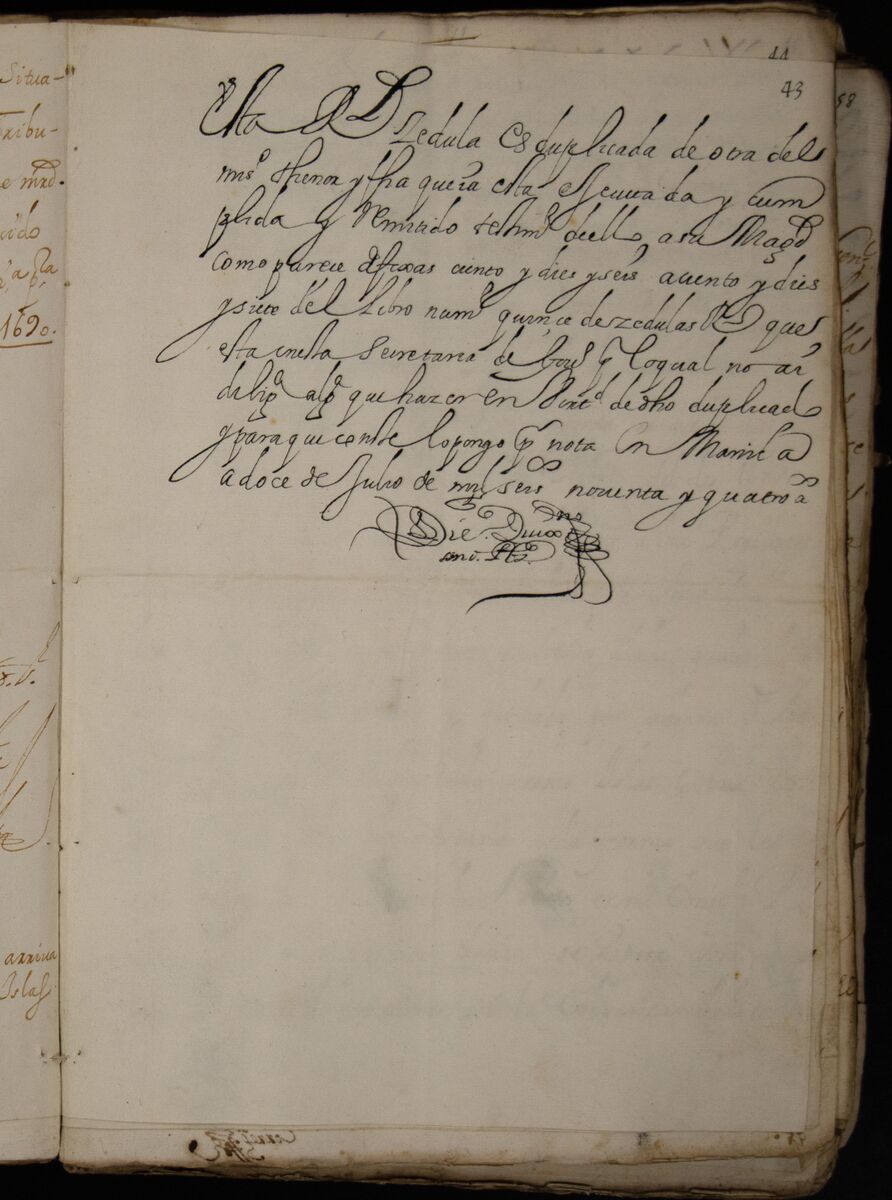 44
43
Esta Rl
Zedula Es duplicada de otra del
mismo thenor y fha que ya esta Ejecutada y cum
plida y Remitido testimo dello a su Magd
como parece a foxas ciento y dies y seis a ciento y dies
y siete del Libro numo quince de zedulas Rs que
esta en esta Secretaria de Govo pr lo qual no ai
diliga alga que hazer En Virtd de dho duplicado
y para que conste lo pongo pr nota En Manila
a doce de Julio de mil seiso noventa y quatro as
Situa-
tribu-
e mrd.
1690.
arriua
Islas
58